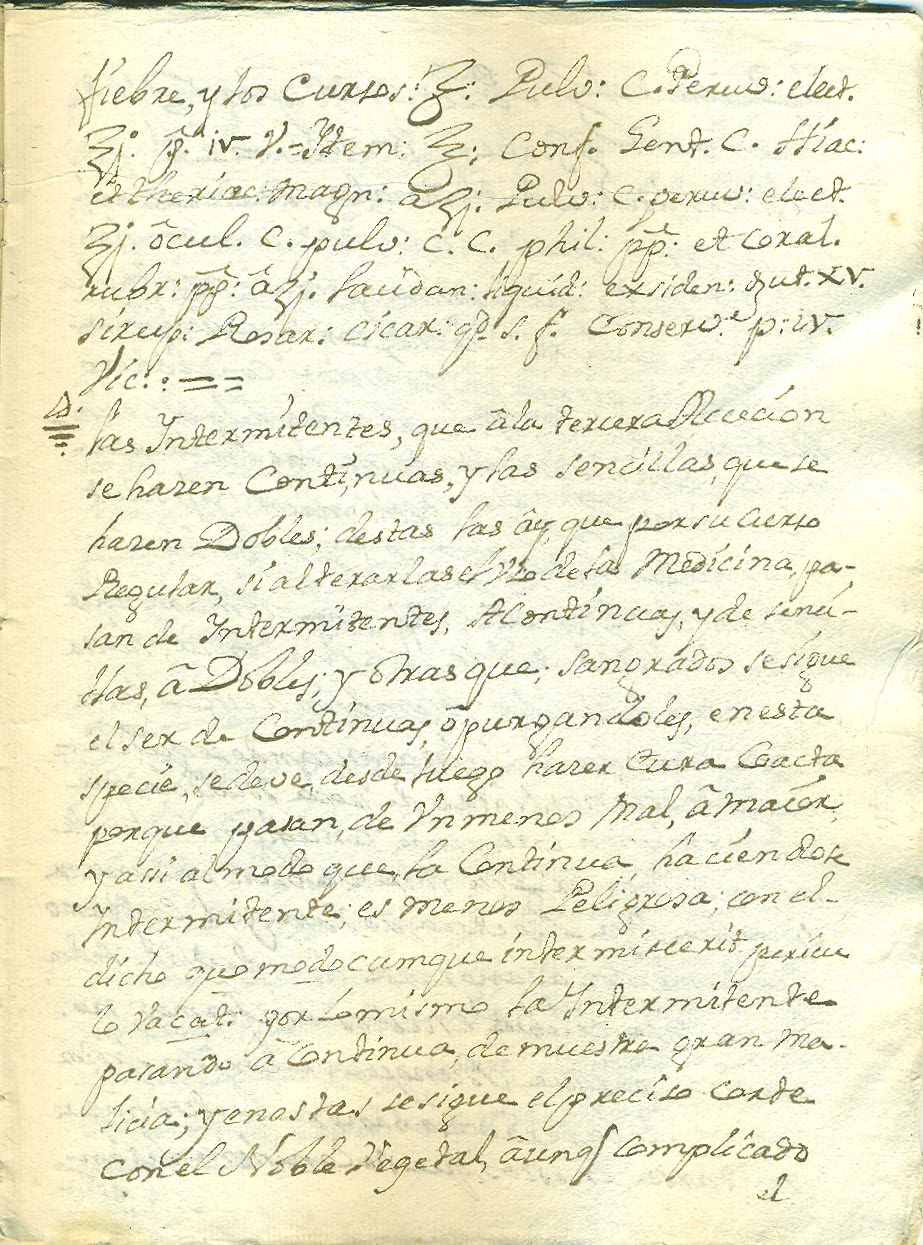 fiebre, y los Cursos: ℞: Pulv: C. Peruv: elect.
ʒj. p̃. iv. V. = Item: ℞; Conf. Gent. C. Hiac:
et theriac: Magn: â ʒj. Pulv: C. peruv: elect.
ʒj. ôcul. C. pulv: C. C. phil: pp̃: et Coral.
rubr: pp̃: â ʒj. laûdan: liquid: exsiden: gut. XV.
sirup: Rosar: Cicar: q. s. f. Conserv.ª p: iv.
Vic: : = =
las Intermitentes, que â la tercera Accecion
se hazen Continuas, y las sencillas, que se
hazen Dobles; destas las ây, que por su curso
Regular, si alterarlas el Vso de la Medicina, pa-
san de Intermitentes, A Continuas, y de senci-
llas, â Dobles; y otras que; sangrados se sigue
el ser de Continuas, ô purgandoles, en esta
specie, se deve, desde luego hazer Cura Coacta
porque pasan, de Vn menos Mal, â Maior,
y assi al modo que, la Continua, haciendose
Intermitente; es menos Peligrosa; con el-
dicho quomodocumque intermiscerit pericu
lo Vacat: por lo mismo la Intermitente
pasando â Continua, demuestra gran Ma-
licia; y enostas se sigue el preciso corte
con el Noble Vegetal, âunq̃ complicado
el